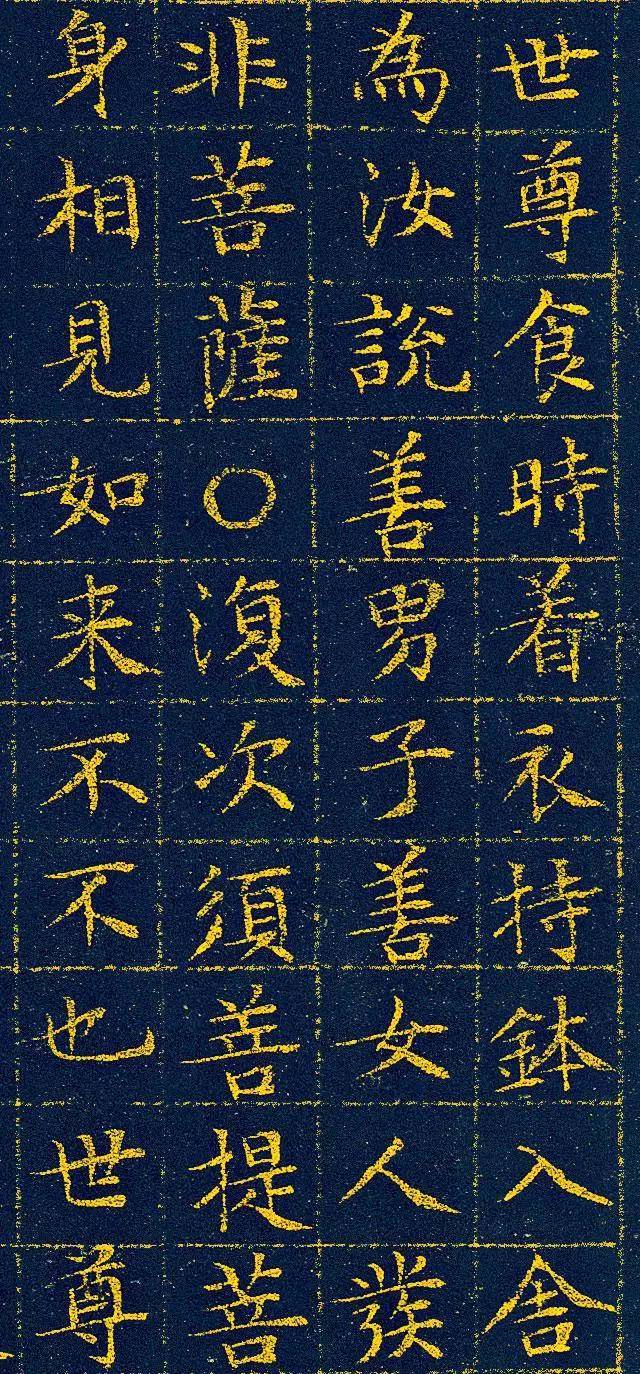 世尊食時着衣持鉢入舍
為汝說善男子善女人發
非菩薩〇復次須菩提菩
身相見如来不不也世尊